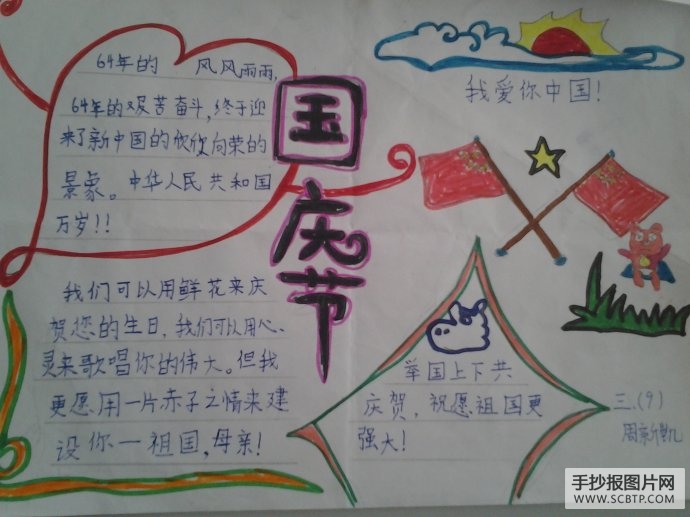 64年的 风风雨雨,
64年的艰苦奋斗,终于迎
来了新中国的欣欣向荣的
景象。中华人民共和国
万岁!!
国庆节
我爱你中国!
我们可以用鲜花来庆
贺您的生日,我们可以用心
灵来歌唱你的伟大。但我
更愿用一片赤子之情来建
设你一祖国,母亲!
举国上下共
庆贺,祝愿祖国更
强大!
三.(9)
手抄报图片网
WWW.SCBTP.COM